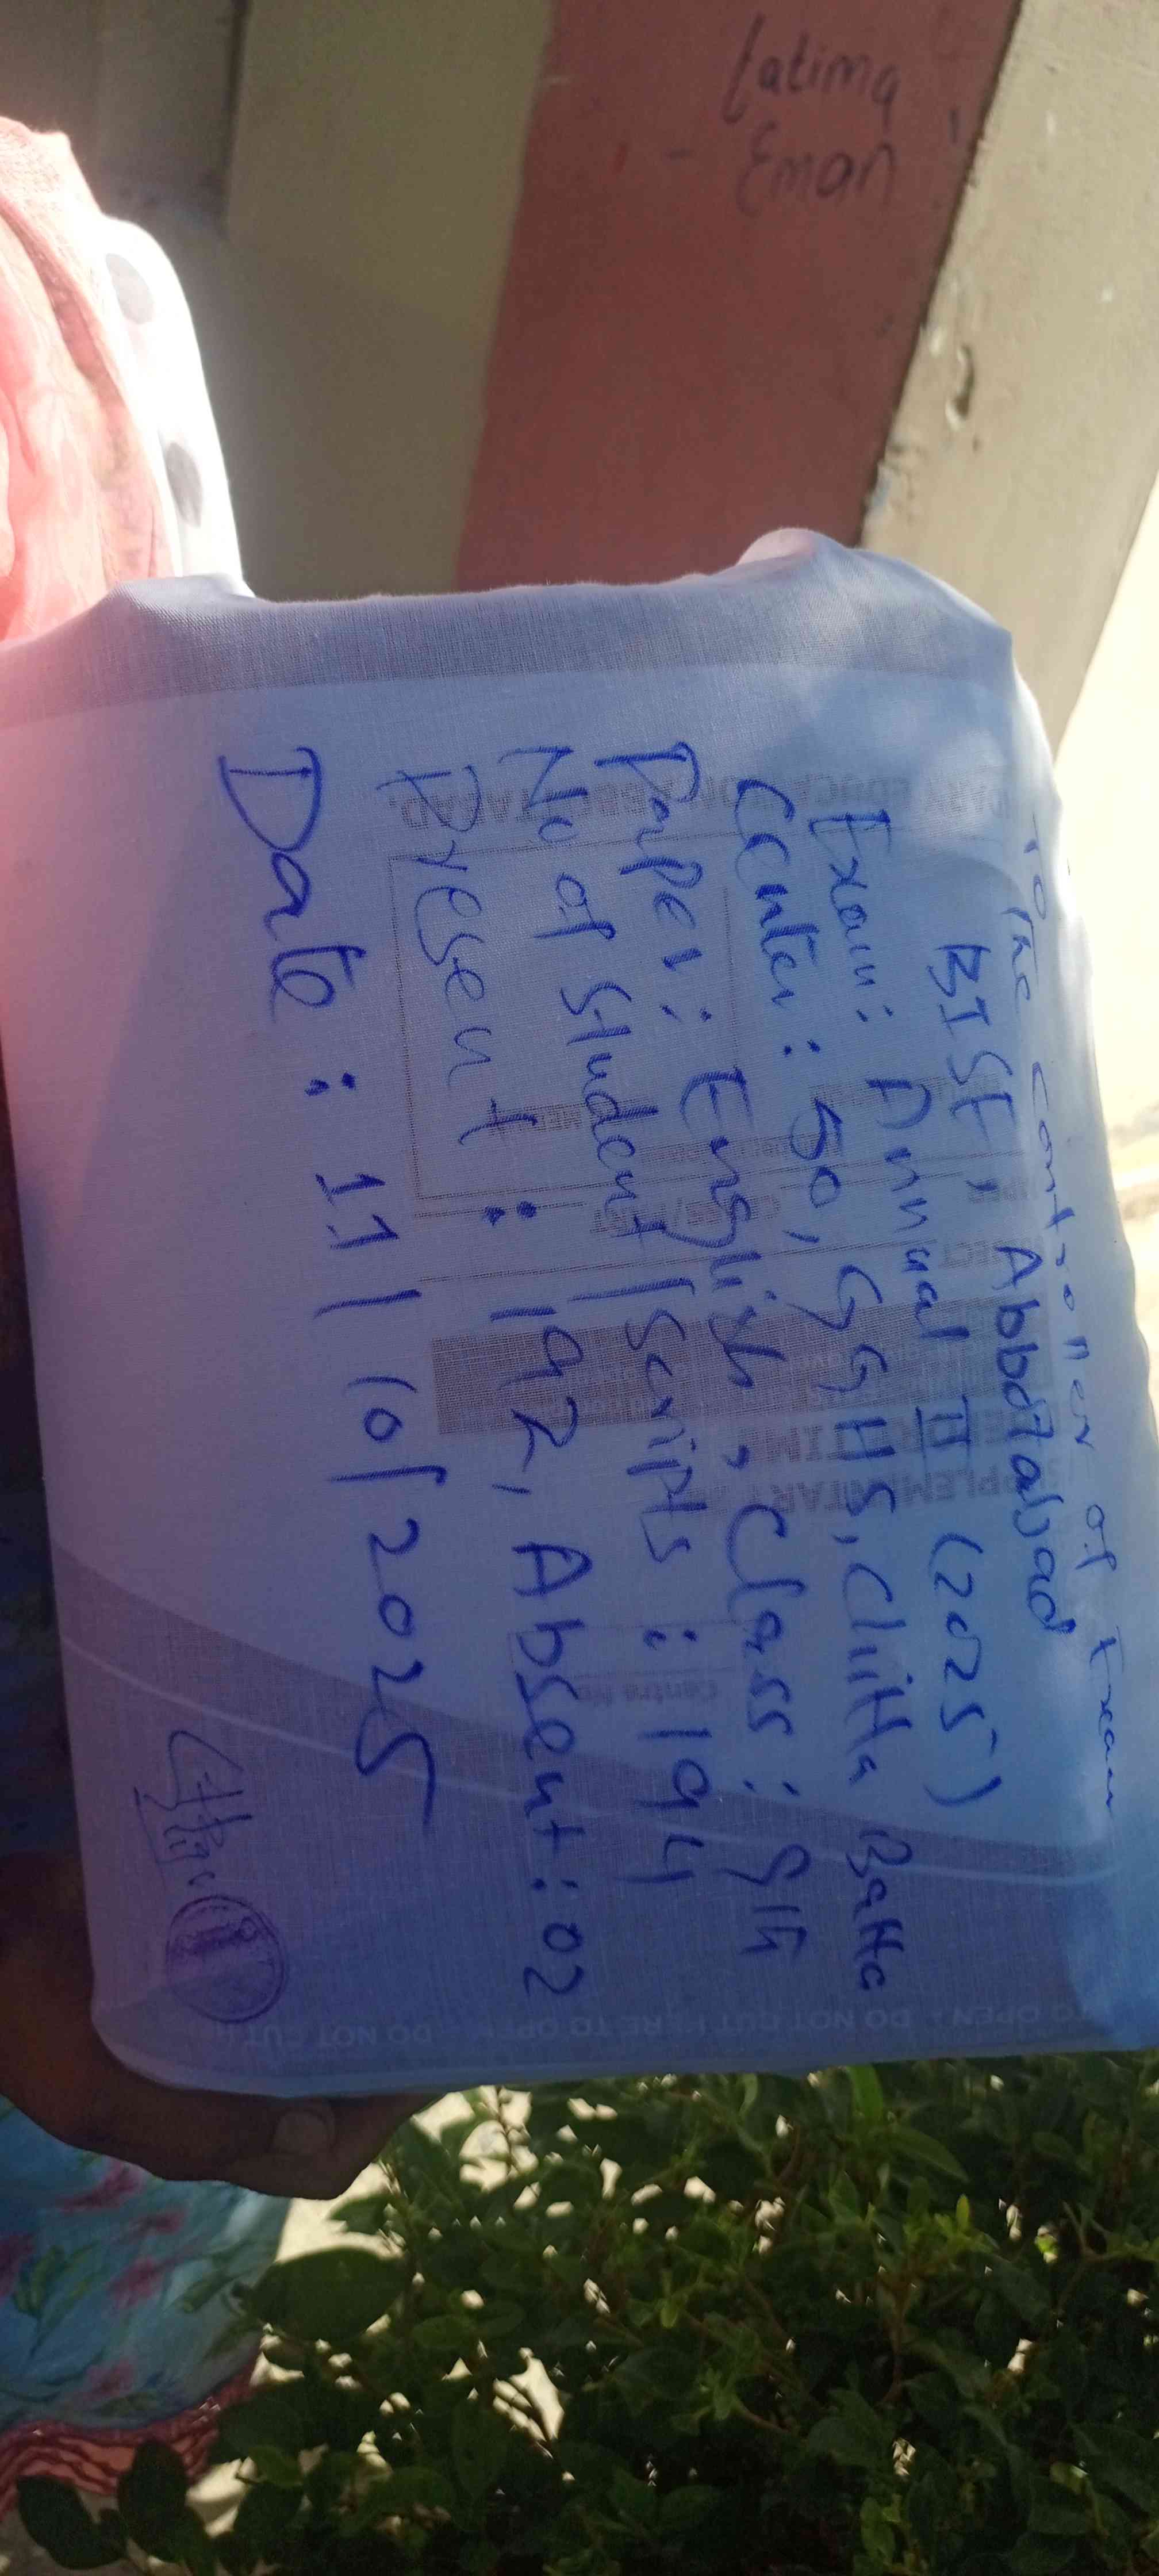 To The Controller of Exam
BISE, Abbottabad
Exam: Annual II (2025)
Center: 50, GGHS, Chitta Batta
Paper: English, Class: 9th
No of Student / Scripts : 194
Present : 192, Absent : 02
Date : 11/10/2025
fatima
Eman
DO NOT CUT HERE TO OPEN
Centre No